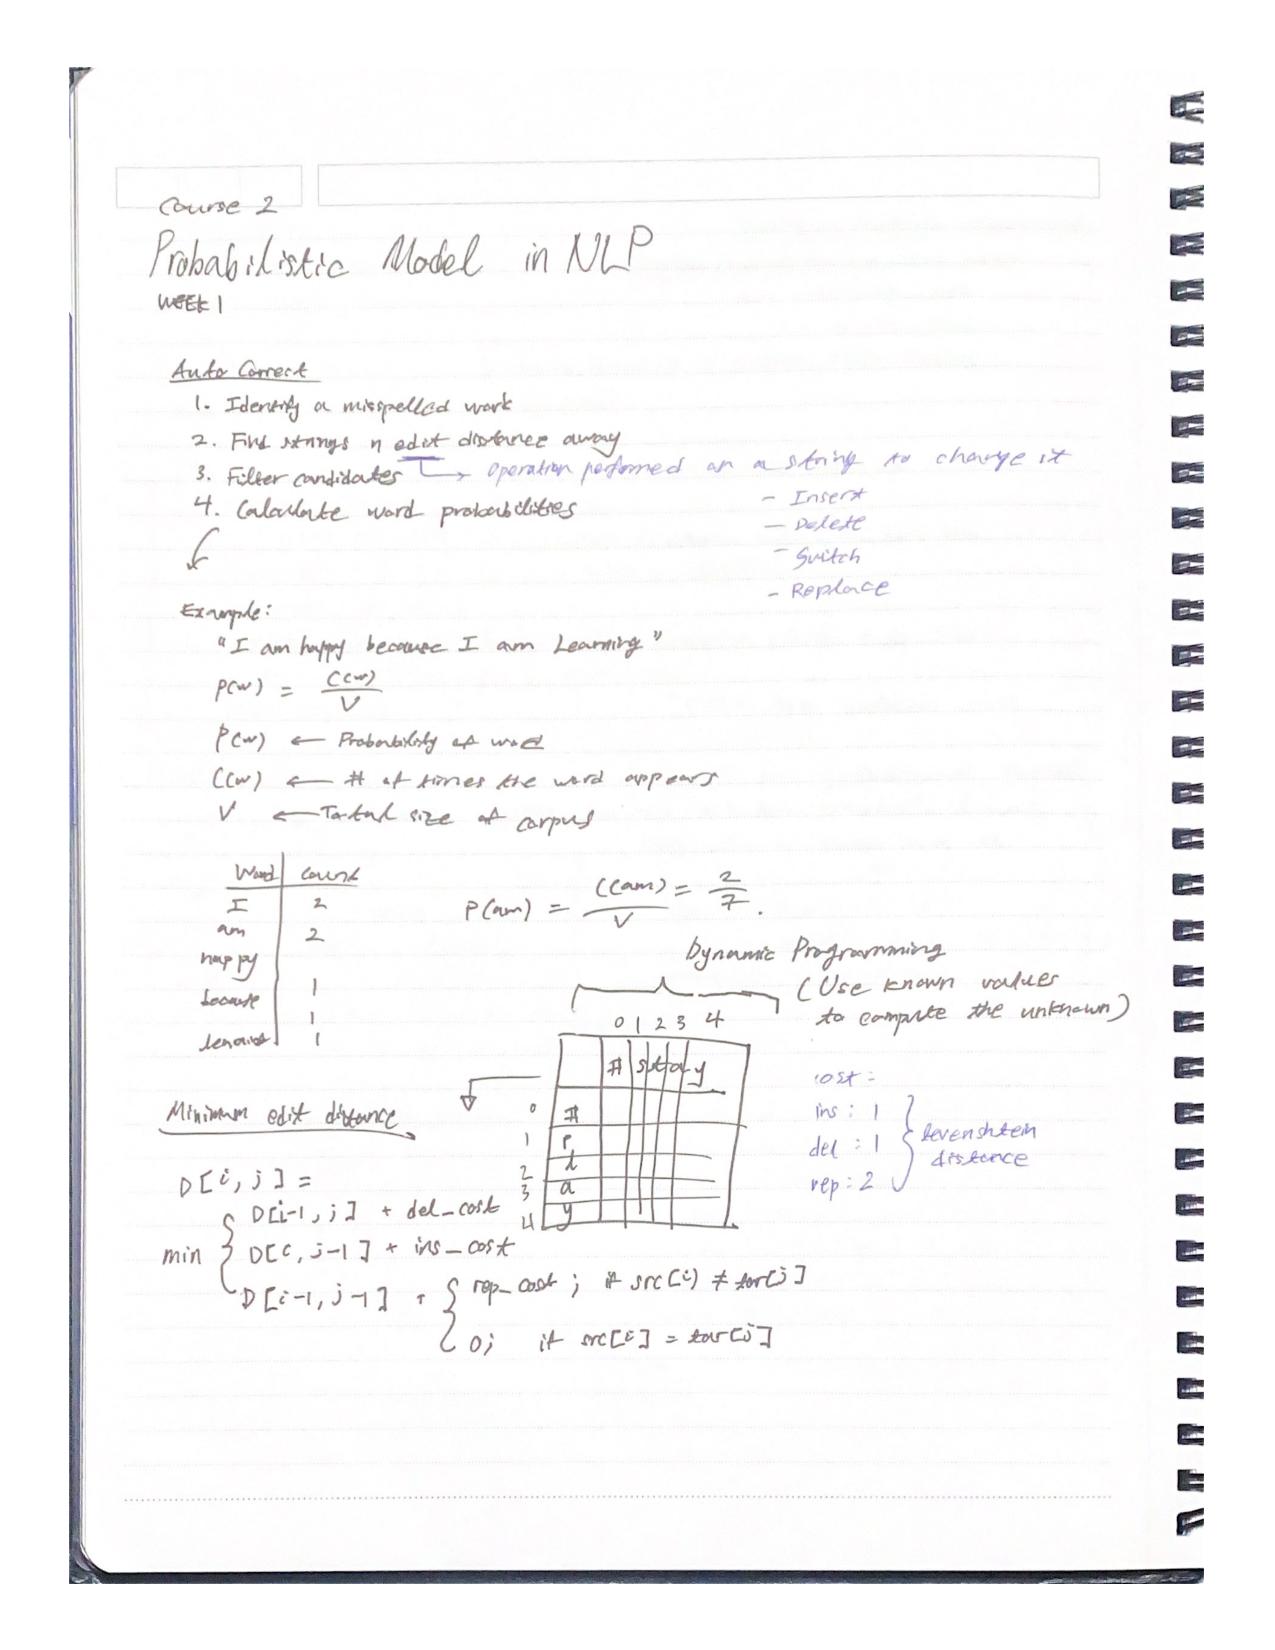 Course 2
Probabilistic Model in NLP
WEEK 1
Auto Correct
1. Identify a misspelled work
2. Find strings n edit distance away
3. Filter candidates → operation performed on a string to change it
4. Calculate word probabilities
- Insert
- Delete
- Switch
- Replace
Example:
"I am happy because I am Learning"
P(w) = C(w) / V
P(w) ← Probability of word
C(w) ← # of times the word appears
V ← Total size of corpus
Word Count
I 2
am 2
happy
because 1
1
1
P(am) = C(am) / V = 2/7.
Dynamic Programming
(Use known values
to compute the unknown)
0 1 2 3 4
# s t a y
0 #
1 p
2 l
3 a
4 y
cost:
ins: 1
del: 1
rep: 2
levenshtein
distance
Minimum edit distance
D[i, j] =
min { D[i-1, j] + del_cost
D[i, j-1] + ins_cost
D[i-1, j-1] + { rep_cost; if src[i] ≠ tar[j]
0; if src[i] = tar[j]